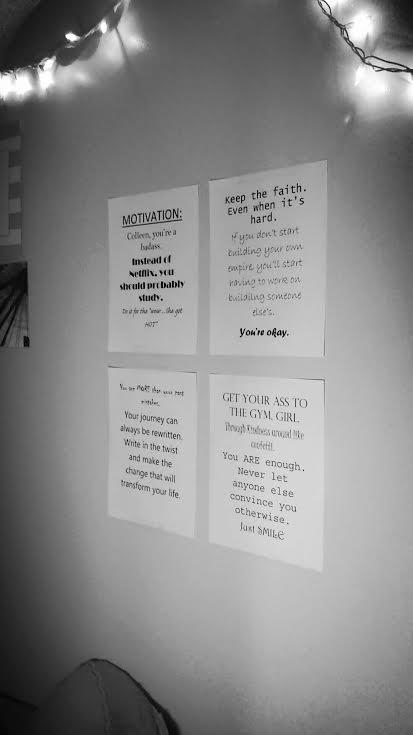 MOTIVATION:
Colleen, you're a
badass.
Instead of
Netflix, you
should probably
study.
Do it for the "wow...she got
HOT"
Keep the faith.
Even when it's
hard.
If you don't start
building your own
empire you'll start
having to work on
builailng someone
else's.
You're okay.
You are MORE than your past
mistakes.
Your journey can
always be rewritten.
Write in the twist
and make the
change that will
transform your life.
GET YOUR ASS TO
THE GYM, GIRL.
Through kindness around like
confetti.
You ARE enough.
Never let
anyone else
convince you
otherwise.
Just SMILE